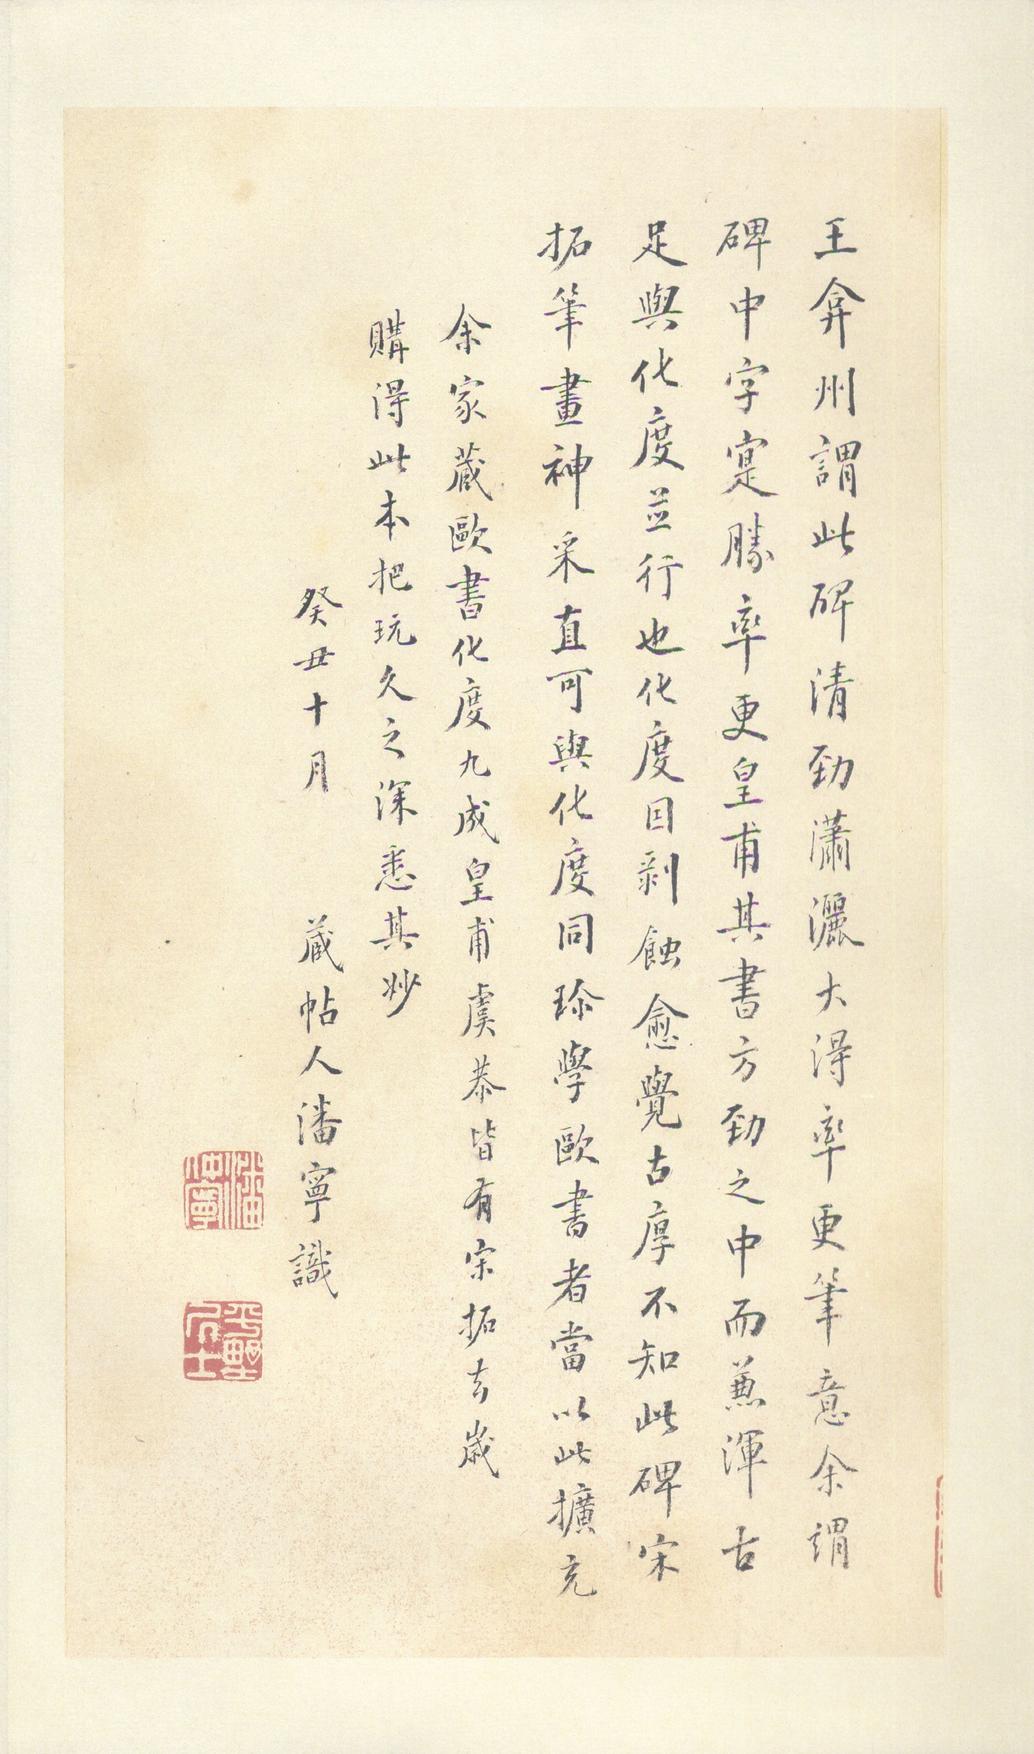 王弇州謂此碑清勁瀟灑大得率更筆意余謂
碑中字寔勝率更皇甫其書方勁之中而兼渾古
足與化度並行也化度因剝蝕愈覺古厚不知此碑宋
拓筆畫神采直可與化度同珍學歐書者當以此擴充
余家藏歐書化度九成皇甫虞恭皆有宋拓去歲
購得此本把玩久之深悉其妙
癸丑十月 藏帖人潘寧識
潘寧
居士